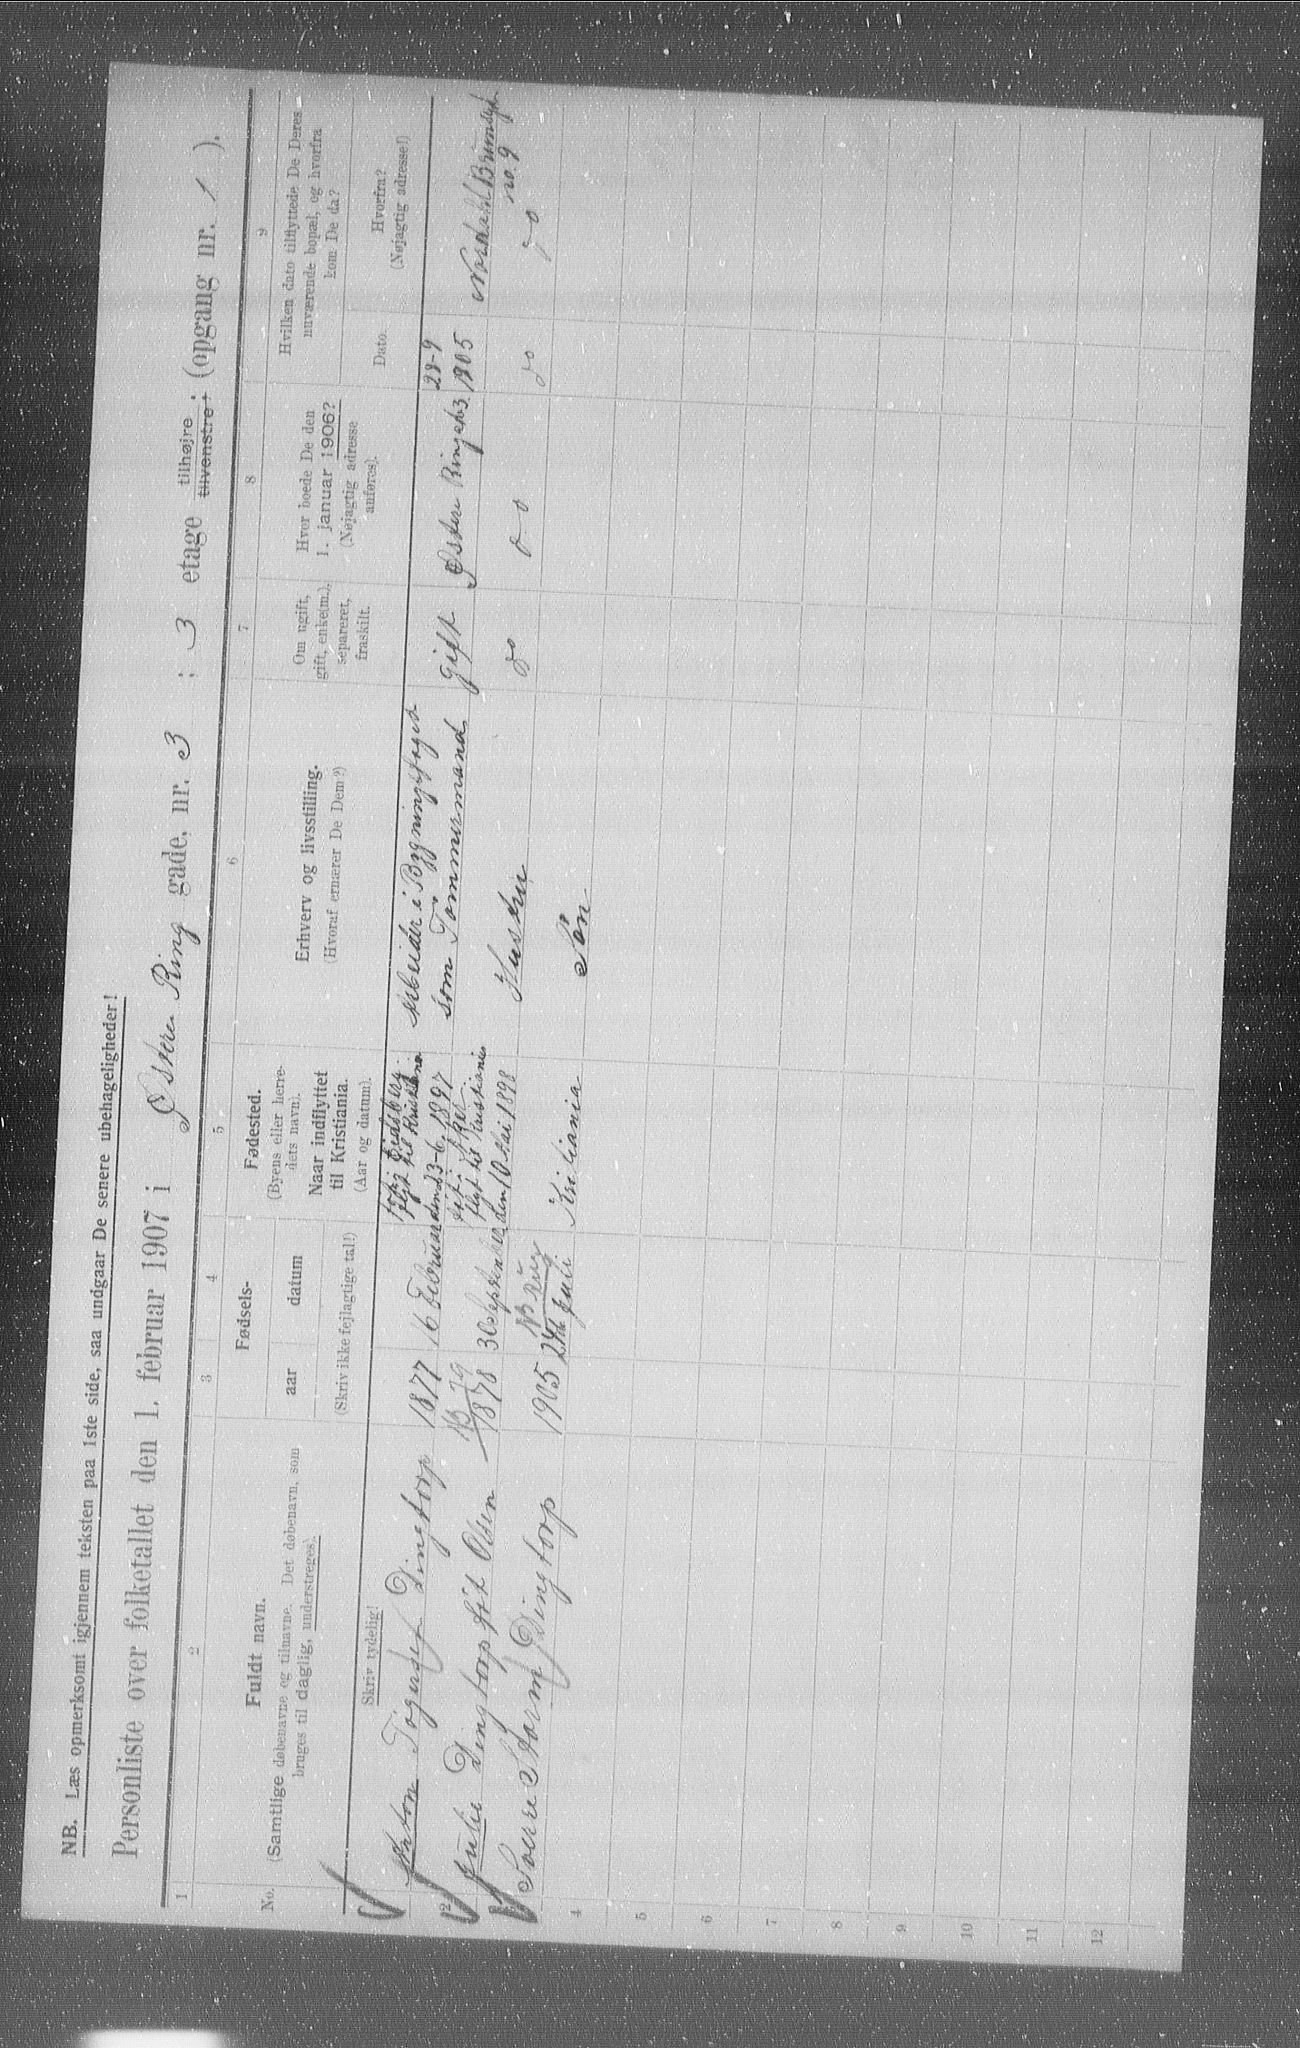 NB. Læs opmerksomt igjennem teksten paa 1ste side, saa undgaar De senere ubehageligheder!
Personliste over folketallet den 1. februar 1907 i Østere Ring gade, nr. 3 ; 3 etage tilhøjre tilvenstre ; (opgang nr. 1 ).
1 2 3 4 5 6 7 8 9
No.
Fuldt navn.
(Samtlige døbenavne og tilnavne. Det døbenavn, som
bruges til daglig, understreges).
Skriv tydelig!
Fødsels-
aar datum
(Skriv ikke fejlagtige tal!)
Fødested.
(Byens eller herre-
dets navn).
Naar indflyttet
til Kristiania.
(Aar og datum).
Erhverv og livsstilling.
(Hvoraf ernærer De Dem?)
Om ugift,
gift, enke(m.),
separeret,
fraskilt.
Hvor boede De den
1. januar 1906?
(Nøjagtig adresse
anføres).
Hvilken dato tilflyttede De Deres
nuværende bopæl, og hvorfra
kom De da?
Dato.
Hvorfra?
(Nøjagtig adresse!)
Anton Dingtorp 1877 16 Februar
Eidsberg
flyt til Kristiania
den 23-6. 1897
Arbeider i Bygningsfaget
som Tømmermand
gift
Østere Ringgd 3.
28-9
1905
Nordahl Brunsgt
no. 9
2
Julie Dingtorp föt Olsen
1878 30 September
föt i
flyt til Kristiania
den 10 Mai 1898
Hustru
do
do
do
do
Sverre Storm Dingtorp 1905 24de Juli Kristiania Søn
4
5
6
7
8
9
10
11
12